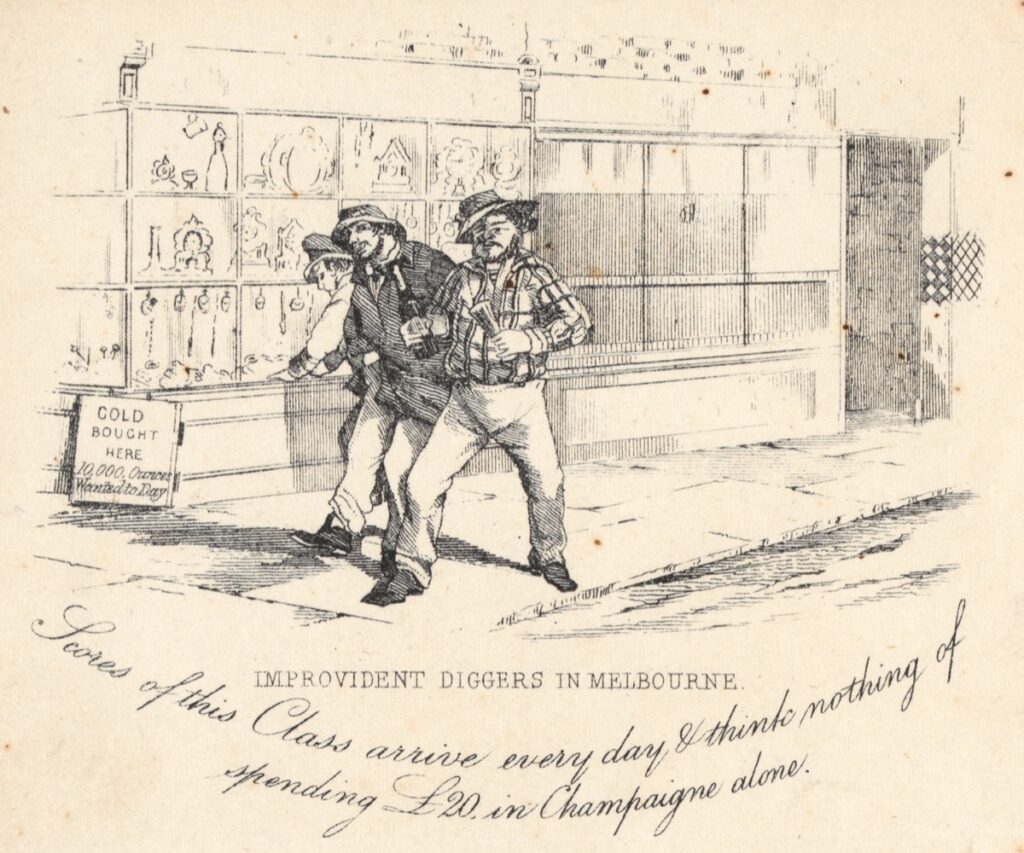 GOLD
BOUGHT
HERE
10,000, Ounces
Wanted to Day
IMPROVIDENT DIGGERS IN MELBOURNE.
Scores of this Class arrive every day & think nothing of
spending £20. in Champaigne alone.